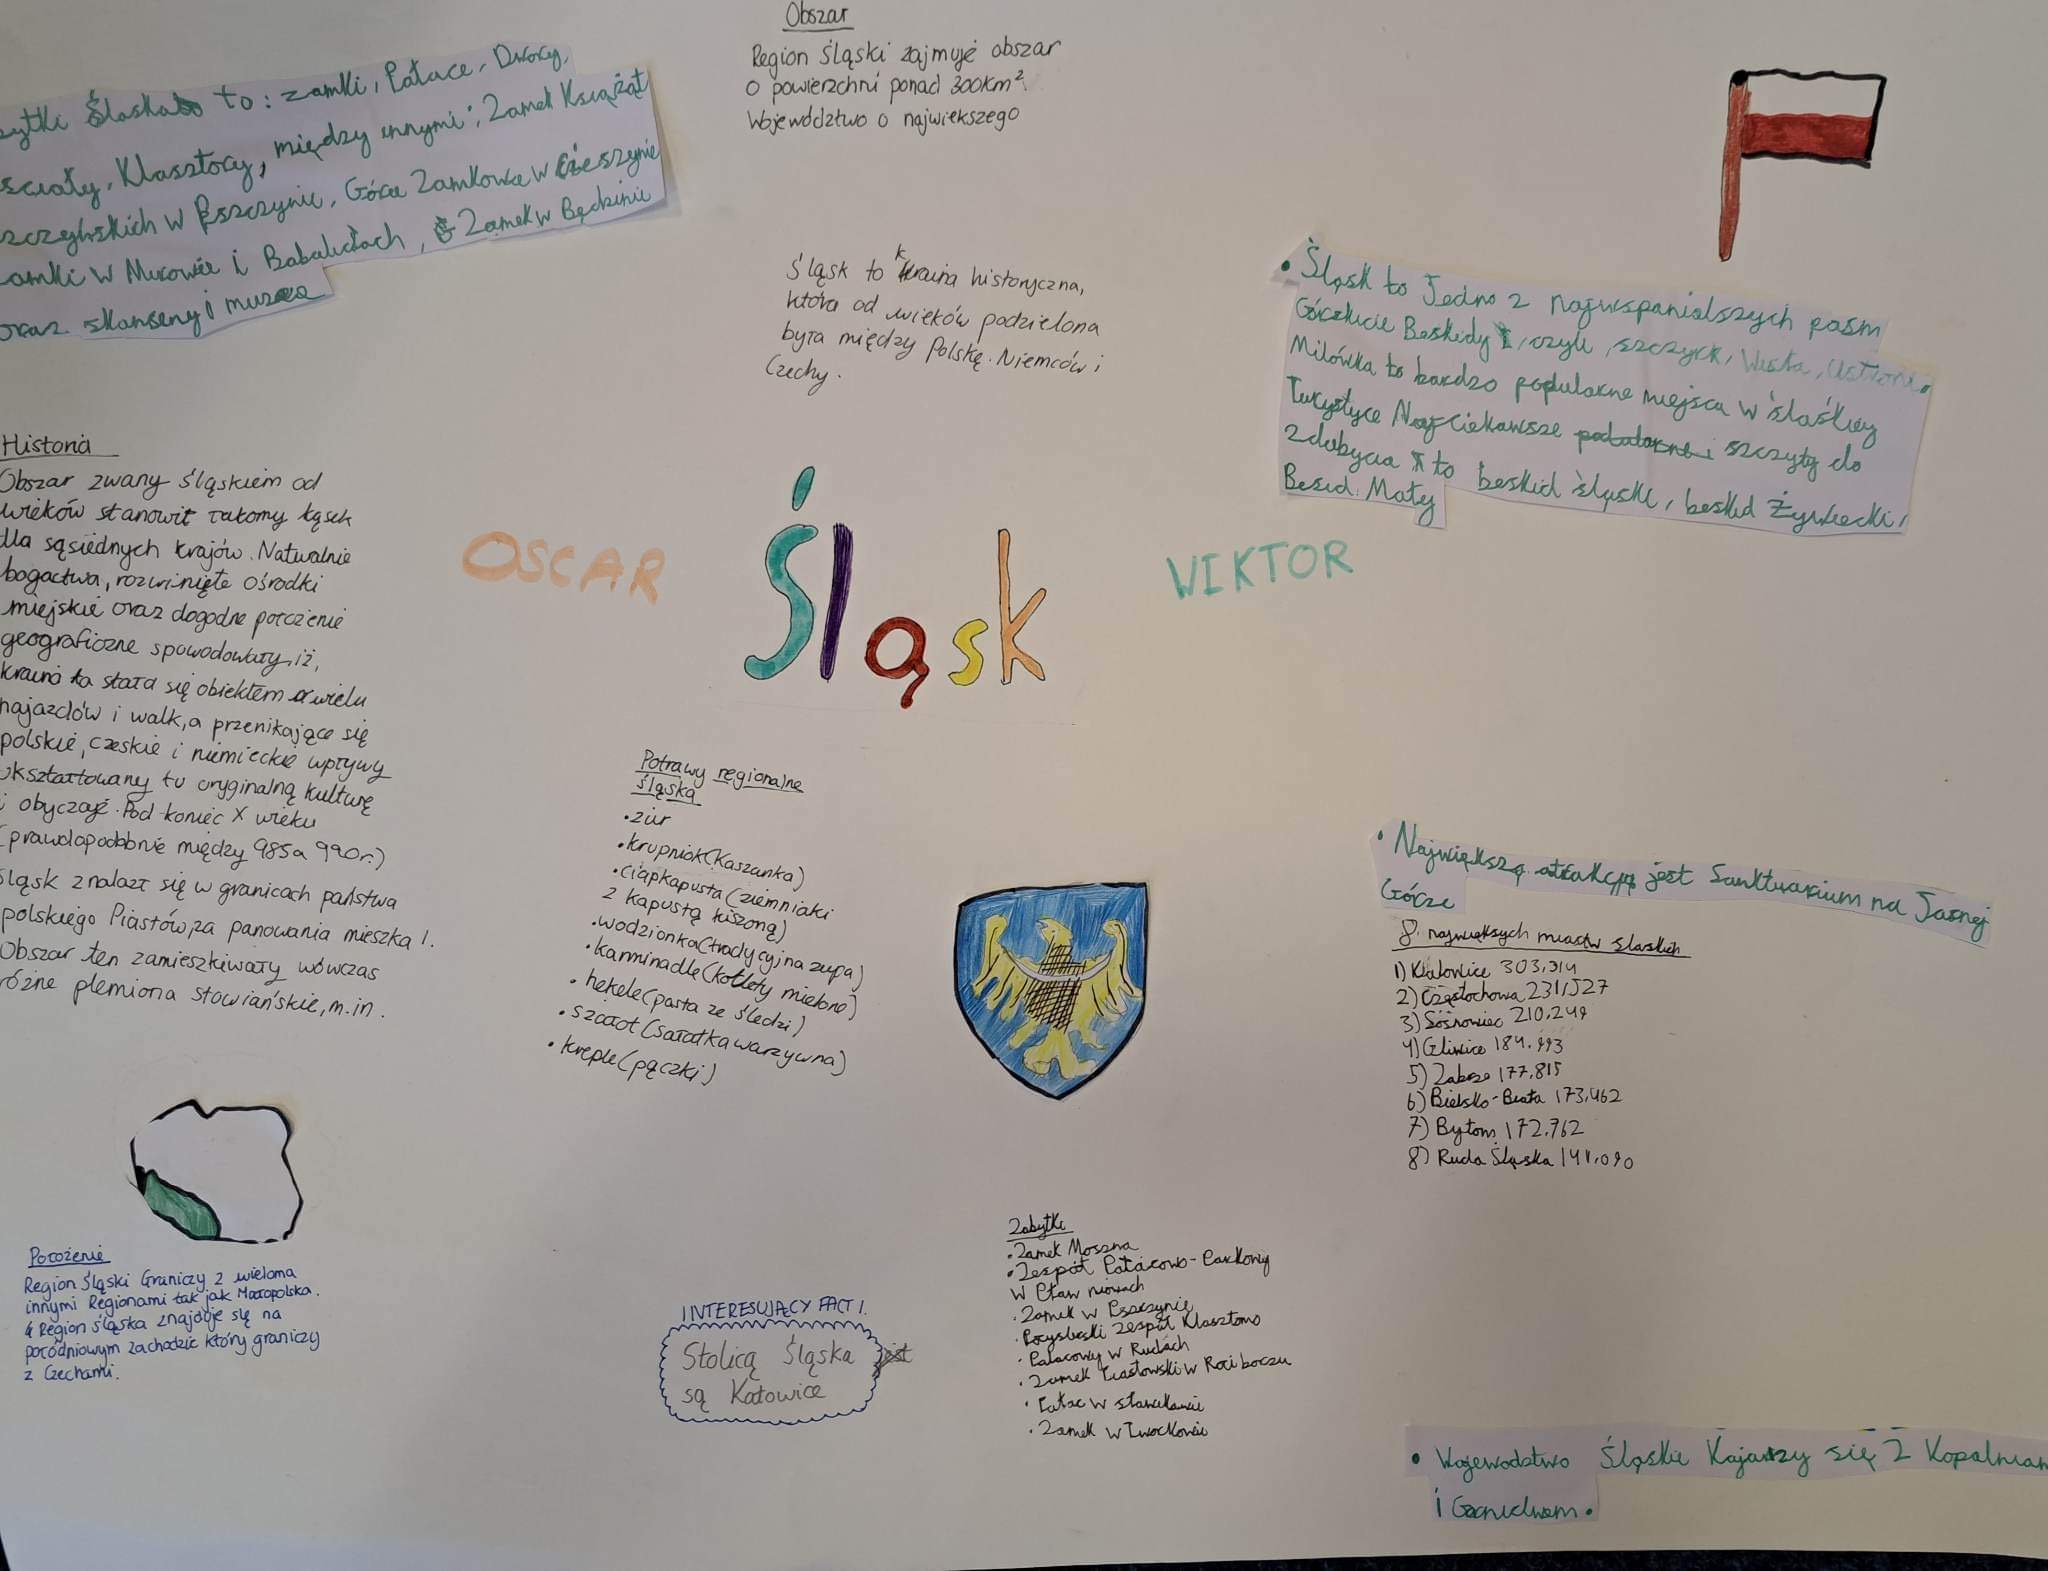 Obszar
Region Śląski zajmuję obszar
o powierzchni ponad 300km²
Województwo o największego
ytki Śląska to: zamki, Pałace, Dwory,
ścioły, Klasztory, między innymi: Zamek Książąt
szczyńskich w Pszczynie, Góra Zamkowa w Cieszynie
amki w Mirowie i Babalicach, Zamek w Będzinie
oraz skanseny i muzea
Śląsk to kraina historyczna,
która od wieków podzielona
była między Polskę. Niemców i
Czechy.
• Śląsk to Jedno z najwspanialszych pasm
Górskie Beskidy, czyli, szczyrk, Wisła, Ustroń.
Milówka to bardzo popularne miejsca w śląskiej
Turystyce Najciekawsze szczyty do
zdobycia to beskid śląski, beskid Żywiecki,
Besid. Mały
Historia
Obszar zwany śląskiem od
wieków stanowił łakomy kąsek
dla sąsiednych krajów. Naturalnie
bogactwa, rozwinięte ośrodki
miejskie oraz dogodne położenie
geograficzne spowodowały, iż,
kraina ta stała się obiektem wielu
najazdów i walk, a przenikające się
polskie, czeskie i niemieckie wpływy
ukształtowany tu oryginalną kulturę
i obyczaje. Pod koniec X wieku
(prawdopodobnie między 985 a 990r.)
śląsk znalazł się w granicach państwa
polskiego Piastów, za panowania mieszka I.
Obszar ten zamieszkiwały wówczas
różne plemiona słowiańskie, m.in.
OSCAR
Śląsk
WIKTOR
Potrawy regionalne
śląska
• żur
• krupniok (kaszanka)
• ciapkapusta (ziemniaki
z kapustą kiszoną)
• wodzionka (tradycyjna zupa)
• karminadle (kotlety mielone)
• hekele (pasta ze śledzi)
• szałot (sałatka warzywna)
• kreple (pączki)
• Największą atrakcją jest Sanktuarium na Jasnej
Górze
8. największych miast śląskich
1) Katowice 303,314
2) Częstochowa 231,527
3) Sosnowiec 210,249
4) Gliwice 184.993
5) Zabrze 177,815
6) Bielsko-Biała 173,462
7) Bytom 172,762
8) Ruda Śląska 141,090
Położenie
Region Śląski Graniczy z wieloma
innymi Regionami tak jak Małopolska.
Region śląska znajduje się na
południowym zachodzie który graniczy
z Czechami.
INTERESUJĄCY FACT 1.
Stolicą Śląska jest
są Katowice
Zabytki
• Zamek Moszna
• Zespół Pałacowo-Parkowy
w Pławniowach
• Zamek w Pszczynie
• Pocysterski zespół Klasztorno
• Pałacowy w Rudach
• Zamek Piastowski w Raciborzu
• Pałac w
• Zamek w Tworkowie
• Wojewodztwo Śląskie Kojarzy się z Kopalniam
i Górnictwem.